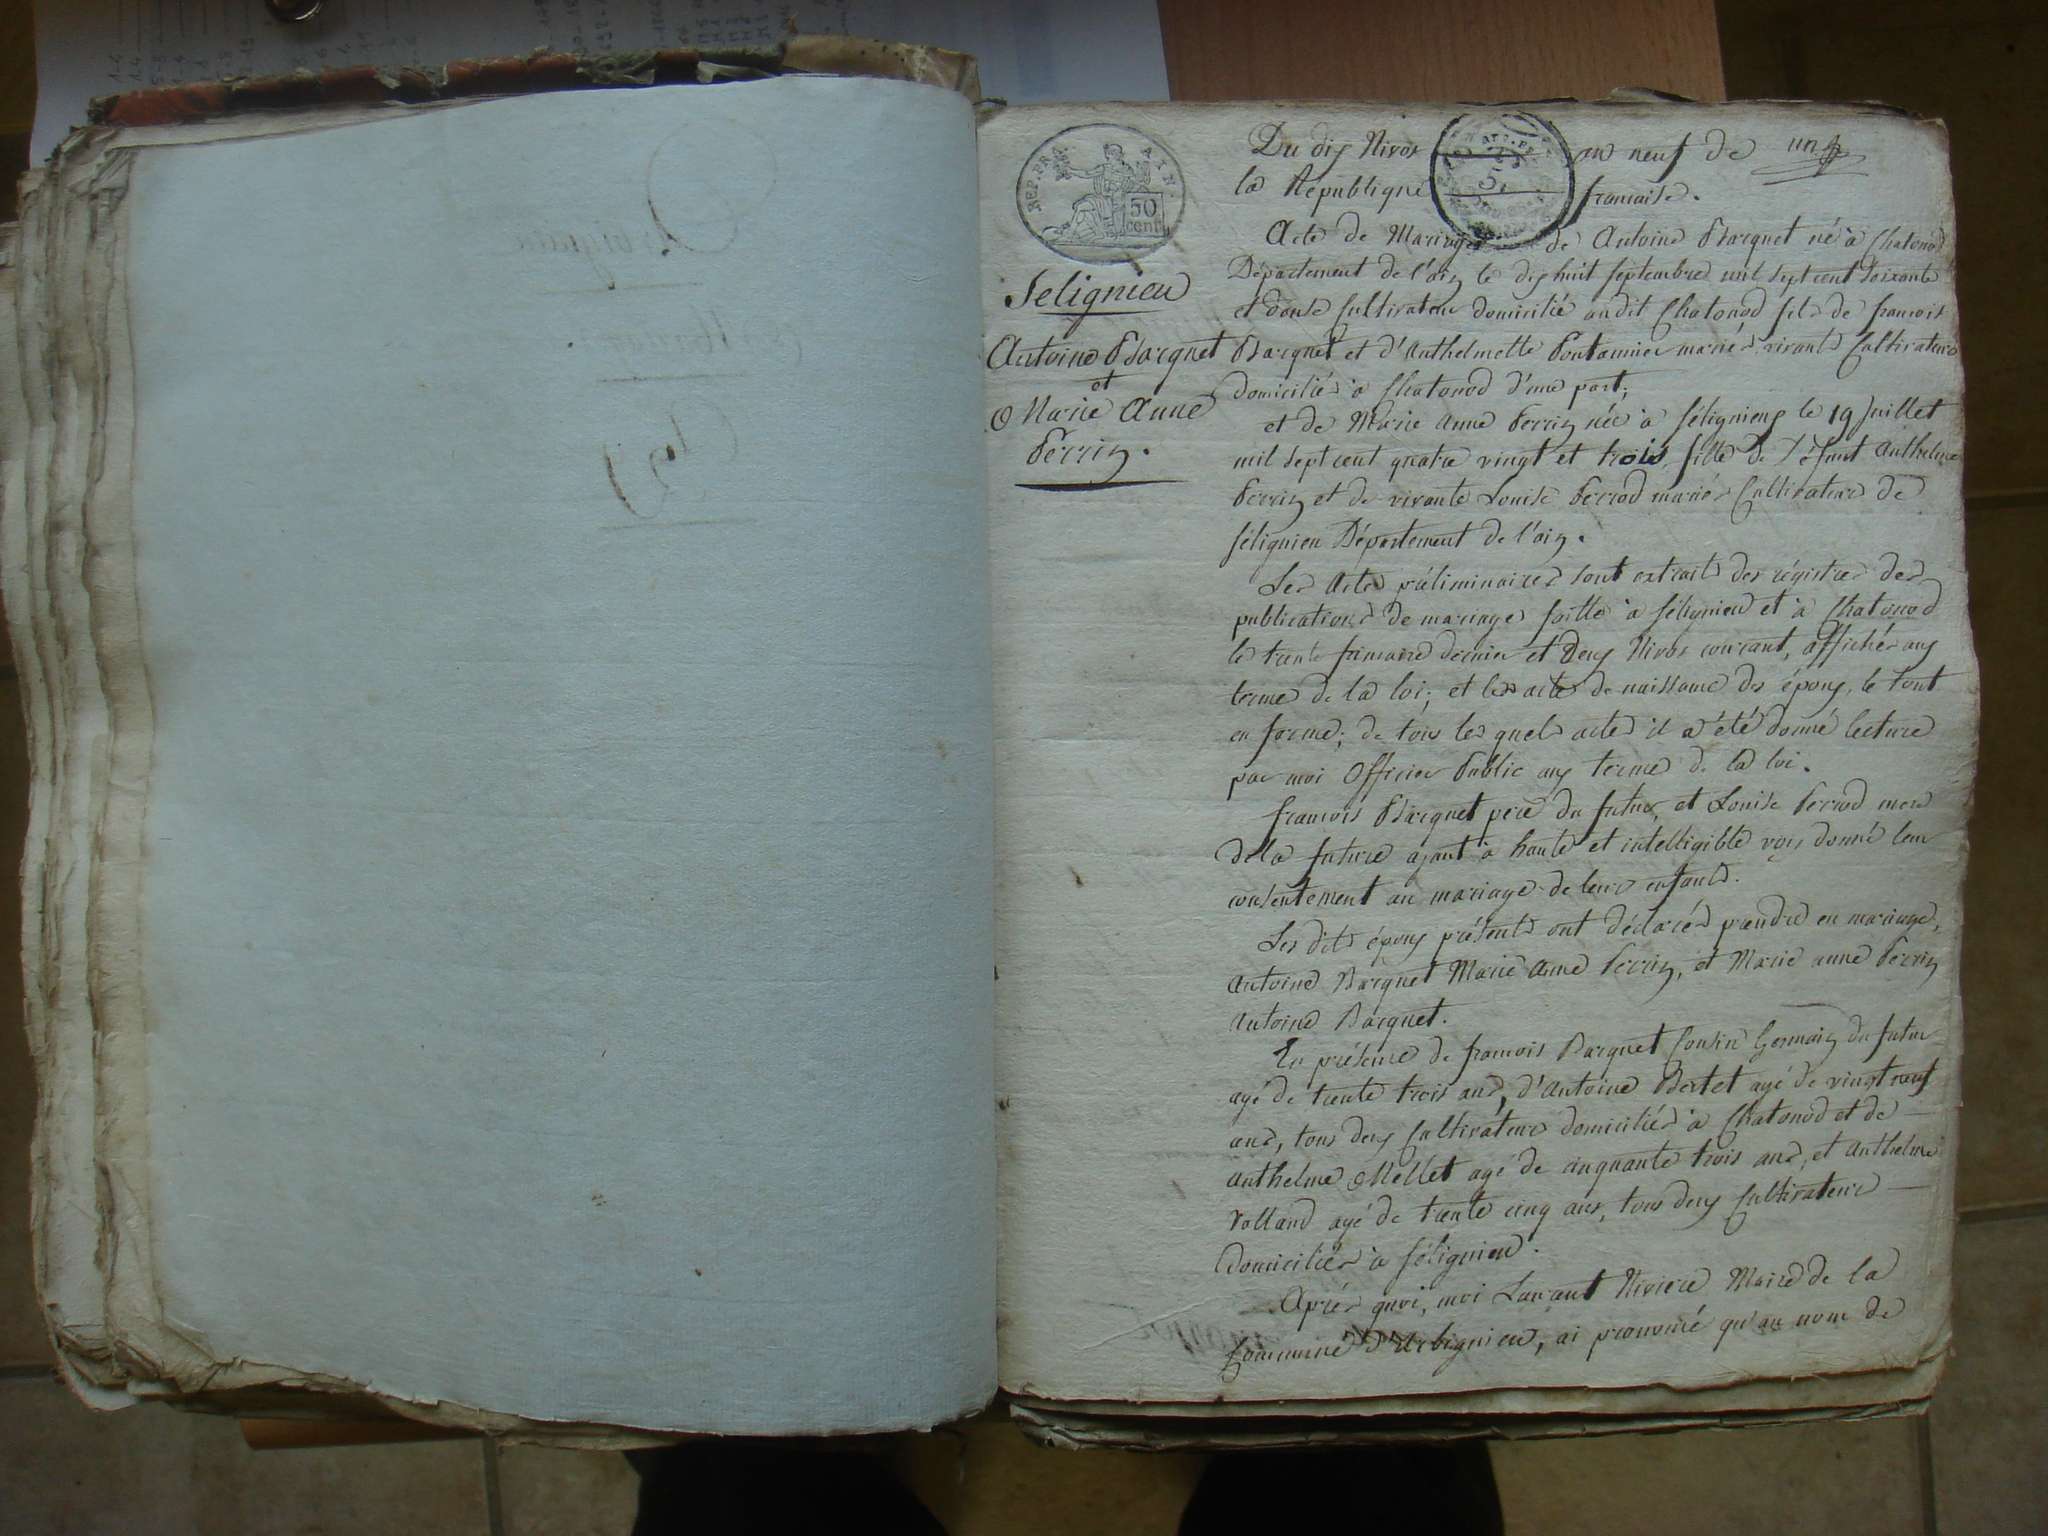 REP. FRA. AIN.
50
cent.
Selignieu
Antoine Barquet
et
Marie Anne
Perrin.
Du dix Nivos an neuf de
la Republique francaise.
Acte de Mariage de Antoine Barquet né à Chatonod
Département de l'ain le dix huit septembre mil sept cent soixante
et douse Cultivateur domicilié audit Chatonod fils de francois
Barquet et d'Anthelmette Pontannier mariés vivants Cultivateurs
domiciliés à Chatonod d'une part;
et de Marie Anne Perrin née à Sélignieux le 19 Juillet
mil sept cent quatre vingt et trois fille de Défunt Anthelme
Perrin et de vivante Louise Perrod mariés Cultivateurs de
Sélignieu Département de l'ain.
Les Actes préliminaires sont extraits des régistres des
publications de mariages faittes à Sélignieu et à Chatonod
le trente frimaire dernier et deux Nivos courant, affichés aux
terme de la loi; et les actes de naissance des époux, le tout
en forme; de tous les quels actes il a été donné lecture
par moi Officier Public aux terme de la loi.
francois Barquet pere du futur, et Louise Perrod mere
de la future ajant à haute et intelligible voix donné leur
consentement au mariage de leurs enfants.
Les dits époux présents ont déclarés prendre en mariage,
Antoine Barquet Marie Anne Perrin, et Marie anne Perrin
Antoine Barquet.
En présence de francois Barquet Cousin Germain du futur
agé de trente trois ans, d'Antoine Bertet agé de vingt neuf
ans, tous deux Cultivateurs domiciliés à Chatonod et de
Anthelme Mellet agé de cinquante trois ans, et Anthelme
Volland agé de trente cinq ans, tous deux Cultivateurs
domiciliés à Sélignieu.
Aprés quoi, moi Laurant Riviere Maire de la
Commune d'Arbignieu, ai prononcé qu'au nom de